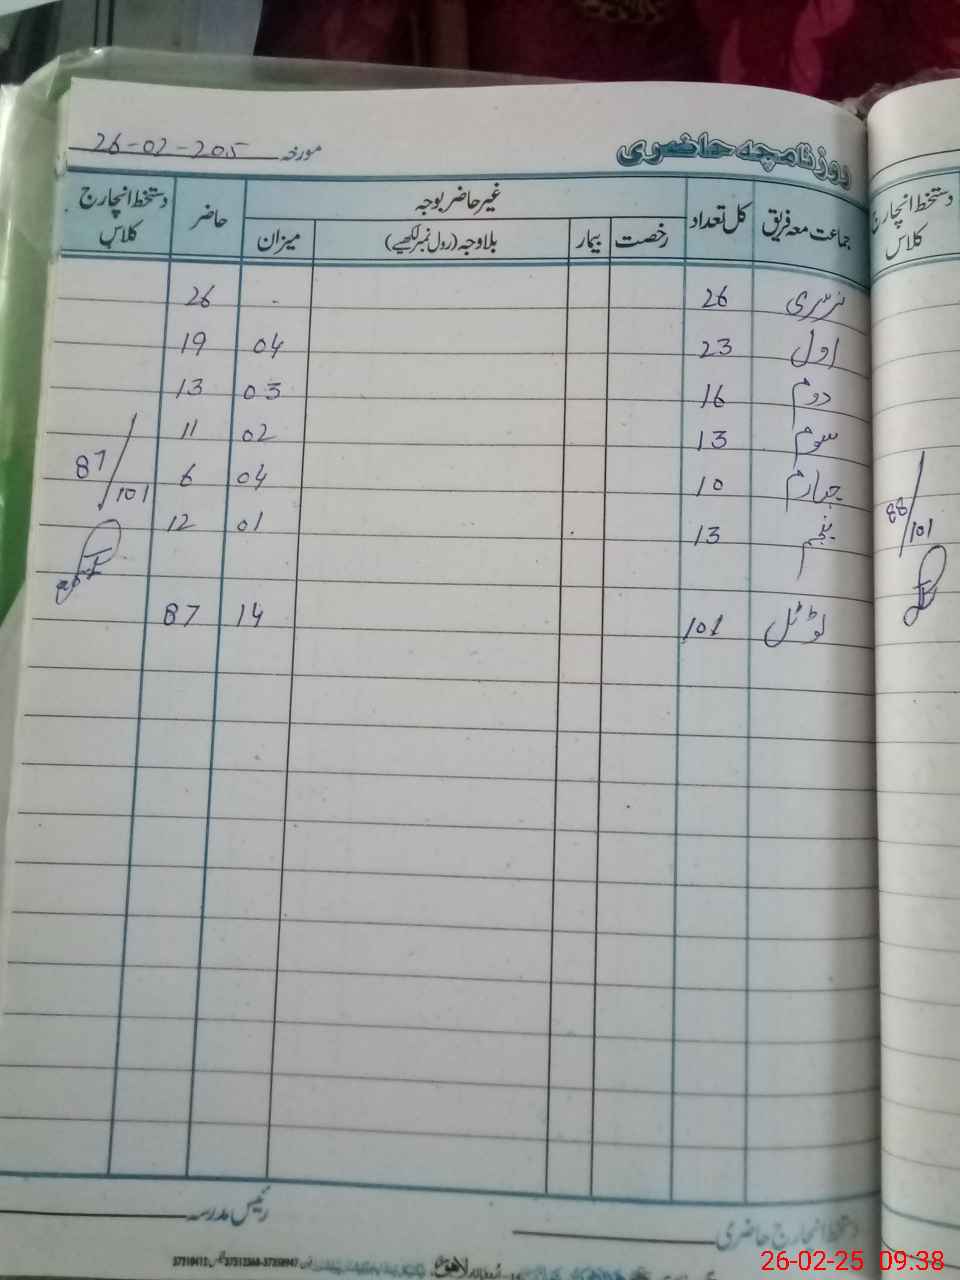 روزنامچہ حاضری
مورخہ 26-02-205
جماعت معہ فریق کل تعداد غیر حاضر بوجہ حاضر دستخط انچارج کلاس
رخصت بیمار بلاوجہ (رول نمبر لکھیے) میزان
نرسری 26 . 26
اول 23 04 19
دوم 16 03 13
سوم 13 02 11
چہارم 10 04 6
پنجم 13 01 12
ٹوٹل 101 14 87
87/101
دستخط انچارج حاضری
رئیس مدرسہ
دستخط انچارج
کلاس
88/101
26-02-25 09:38